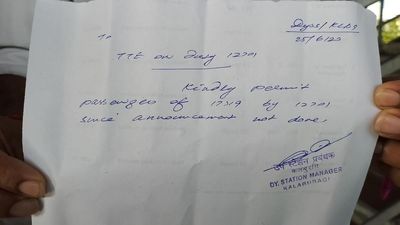 Dyss/KLBG
25/6/23
To
TTE on duty 12701
Kindly permit
passengers of 17319 by 12701
since announcement not done.
उप स्टेशन प्रबंधक
DY. STATION MANAGER
KALABURAGI